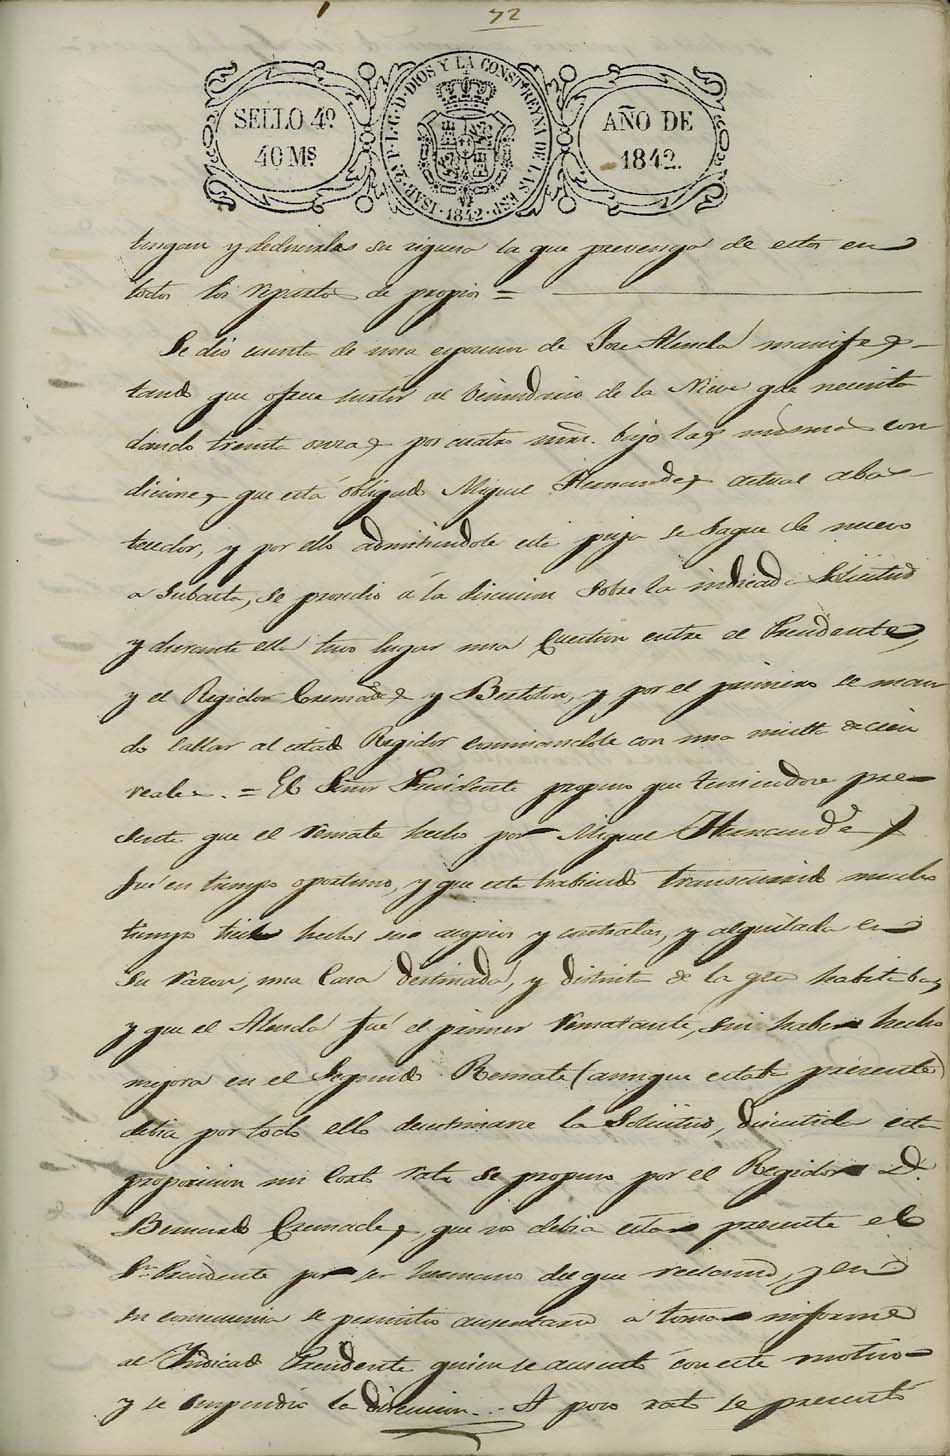 72
SELLO 4º
40 Mˢ
ISAB. 2ª P. L. G. D. DIOS Y LA CONSTⁿ REYNA DE LAS ESP.
1842
AÑO DE
1842.
tengan y deducirles su riguera la que prevenga de estos en
todos los repartos de propios =
Se dió cuenta de una esposicion de Jose Alenda manifes-
tando que ofrece surtir al Vecindario de la Nieve que necesita
dando treinta onzas por cuatro mrs. bajo las mismas con
diciones que está obligado Miguel Hernandez actual abas-
tecedor, y por ello admitiendole esta puja se saque de nuevo
a subasta, se procedio á la discusion sobre la indicada Solicitud
y durante ella tuvo lugar una Cuestion entre el Presidente,
y el Regidor Cremades y Bertolon, y por el primero se man
do callar al citado Regidor conminandole con una multa de cien
reales. = El Señor Presidente propuso que teniendose pre-
sente que el remate hecho por Miguel Hernandez
fué en tiempo oportuno, y que este habiendo transcurrido mucho
tiempo tiene hechos sus acopios y contratas, y alquilada en
su razon, una Casa destinada, y distinta de la que habitaba,
y que el Alenda fué el primer rematante, sin haber hecho
mejora en el Segundo Remate (aunque estaba presente)
debia por todo ello desestimarse la Solicitud, discutida esta
proposicion un corto rato se propuso por el Regidor D.
Bernardo Cremades que no debia estar presente el
Sr. Presidente por ser hermano del que reclama, y en
su consecuencia se permitio ausentarse á tomar informe
al Indicado Presidente quien se ausentó con este motivo
y se suspendió la discusion. A poco rato se presentó